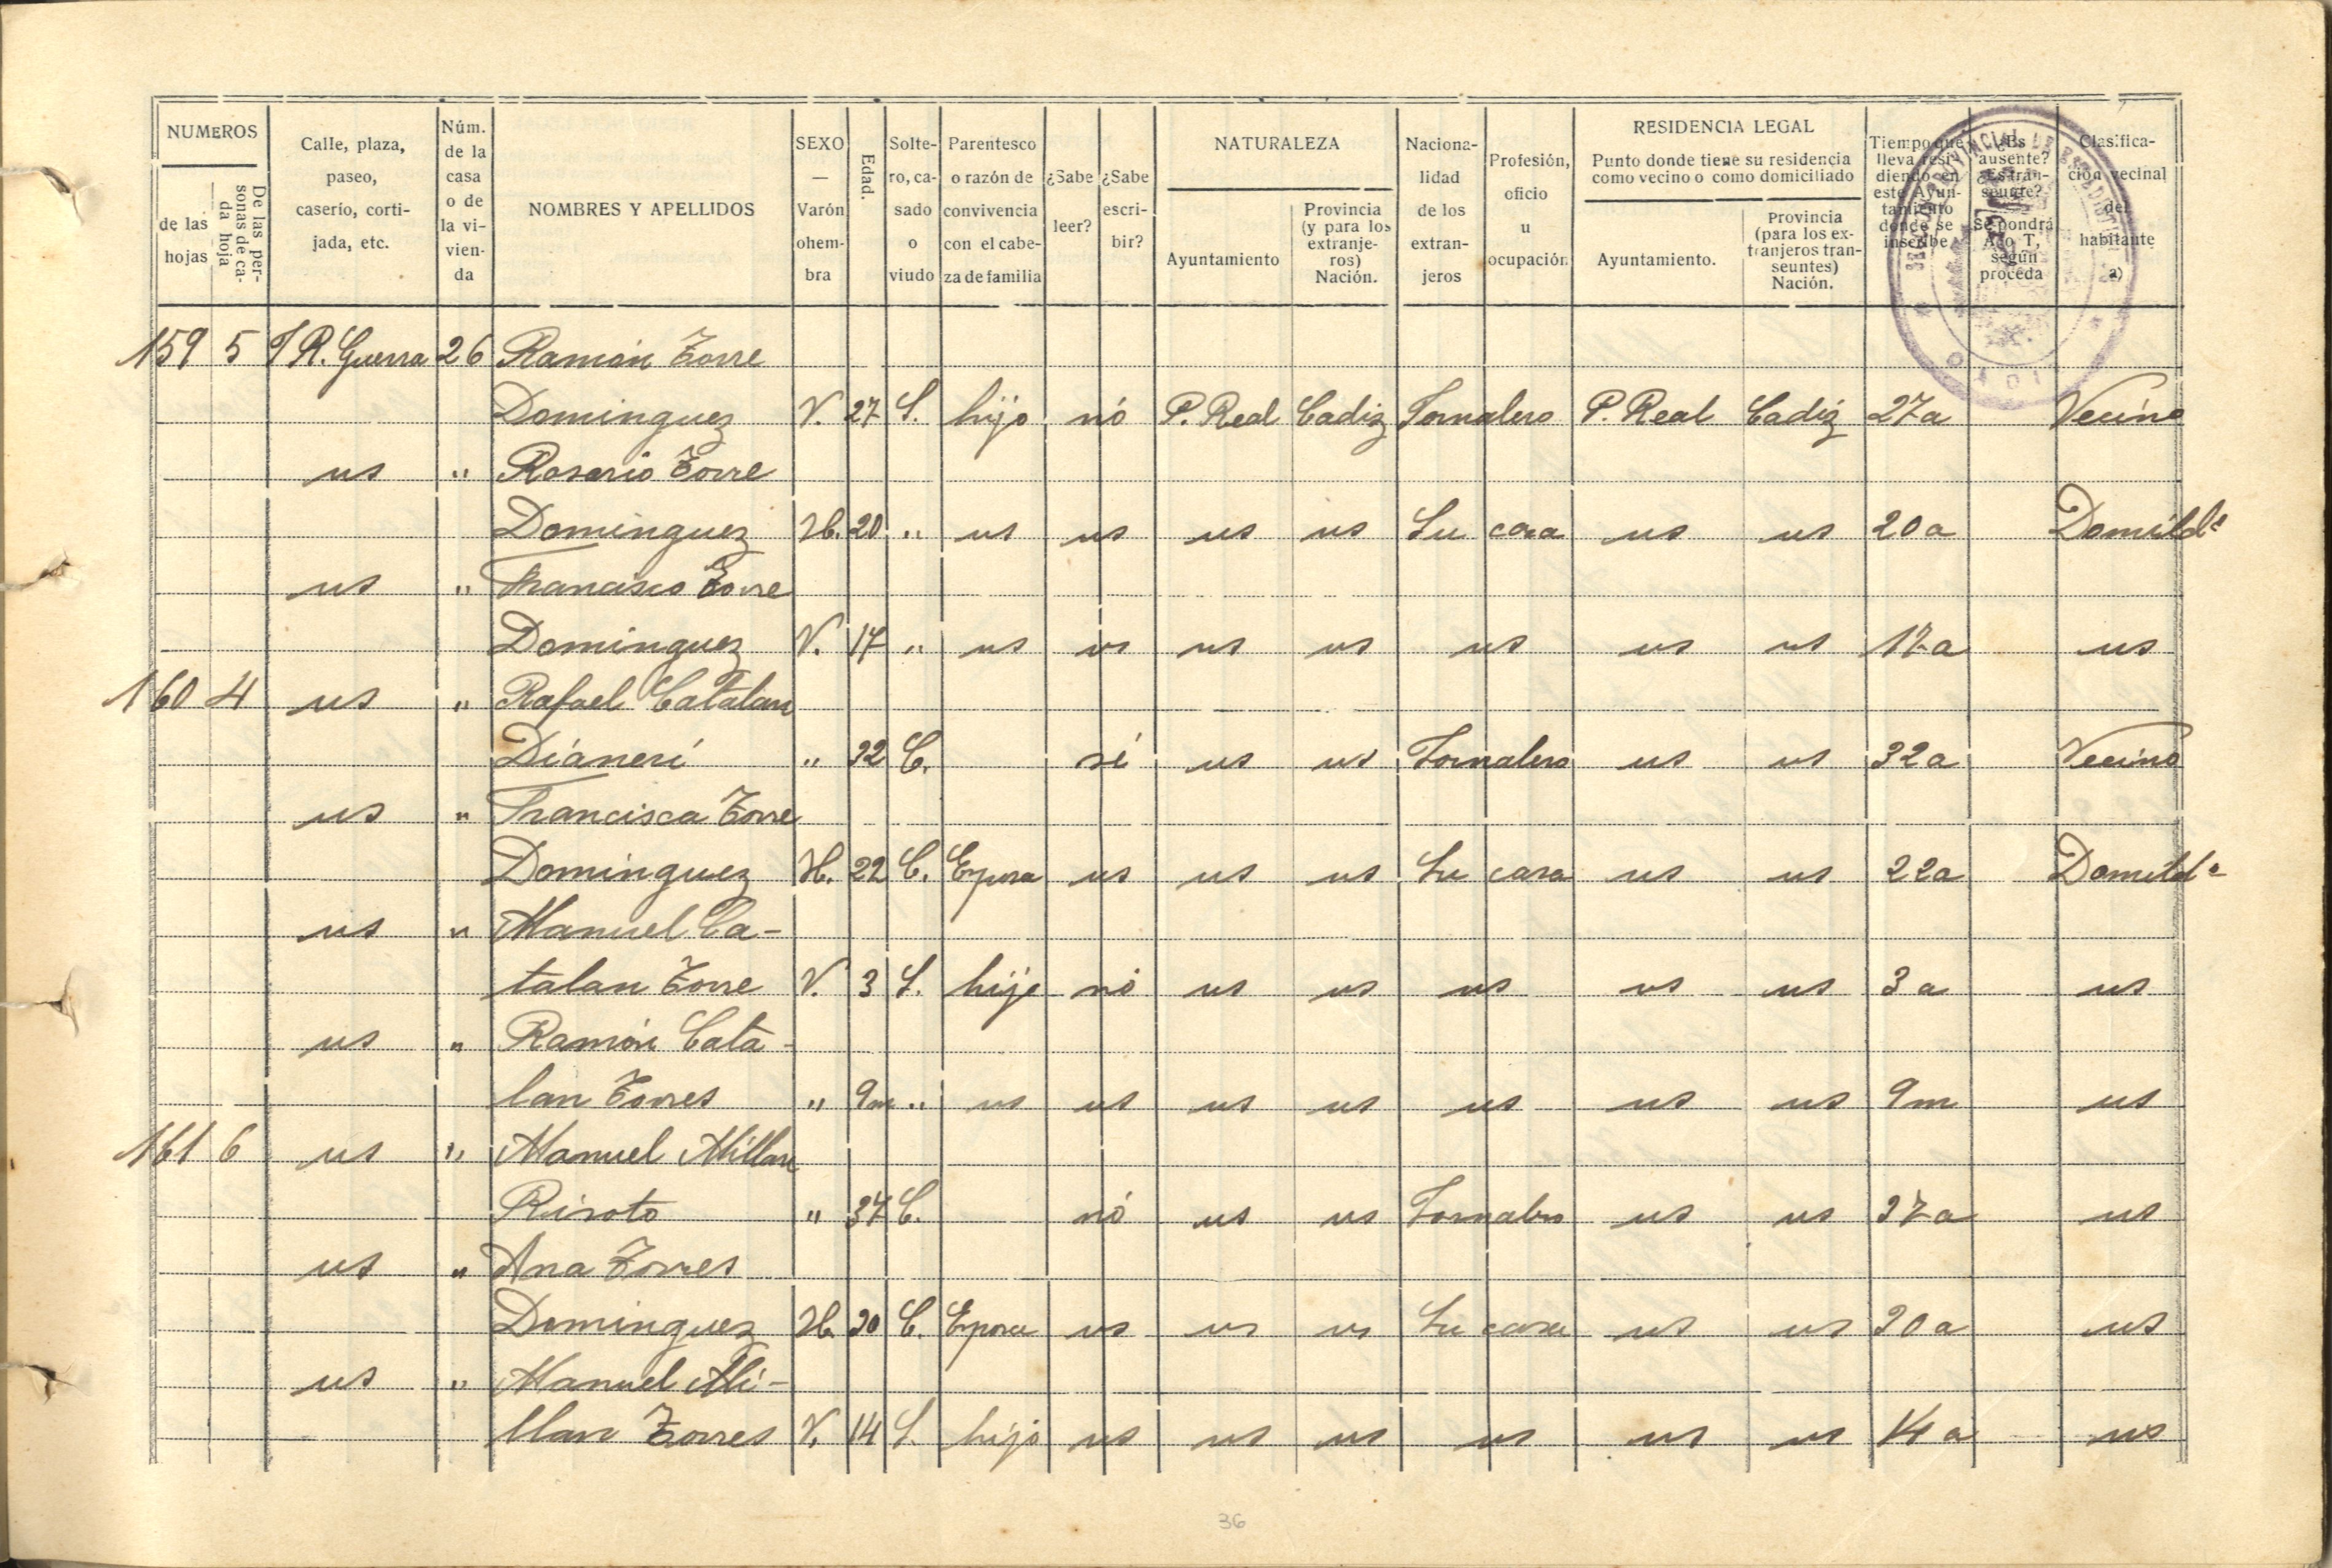 NUMEROS
de las hojas
De las personas de cada hoja
Calle, plaza, paseo, caserío, cortijada, etc.
Núm. de la casa o de la vivienda
NOMBRES Y APELLIDOS
SEXO — Varón o hembra
Edad.
Soltero, casado o viudo
Parentesco o razón de convivencia con el cabeza de familia
¿Sabe leer?
¿Sabe escribir?
NATURALEZA
Ayuntamiento
Provincia (y para los extranjeros) Nación.
Nacionalidad de los extranjeros
Profesión, oficio u ocupación
RESIDENCIA LEGAL
Punto donde tiene su residencia como vecino o como domiciliado
Ayuntamiento.
Provincia (para los extranjeros transeuntes) Nación.
Tiempo que lleva residiendo en este Ayuntamiento donde se inscribe
¿Es ausente? ¿Es transeunte? Se pondrá A o T, según proceda
Clasificación vecinal del habitante a)
159 5 T R. Guerra 26 Ramón Torre
Dominguez V. 27 S. hijo nó P. Real Cadiz Jornalero P. Real Cadiz 27a Vecino
us " Rosario Torre
Dominguez H. 20 " us us us us Su casa us us 20a Domild.º
us " Francisco Torre
Dominguez V. 17 " us us us us us us us 17a us
160 4 us " Rafael Catalan
Dianeri " 32 C. sí us us Jornalero us us 32a Vecino
us " Francisca Torre
Dominguez H. 22 C. Esposa us us us Su casa us us 22a Domild.º
us " Manuel Ca-
talan Torre V. 3 S. hijo nó us us us us us 3a us
us " Ramón Cata-
lan Torres " 9m " us us us us us us us 9m us
161 6 us " Manuel Millan
Risoto " 37 C. nó us us Jornalero us us 37a us
us " Ana Torres
Dominguez H. 30 C. Esposa us us us Su casa us us 30a us
us " Manuel Mi-
llan Torres V. 14 S. hijo us us us us us us 14a us
36